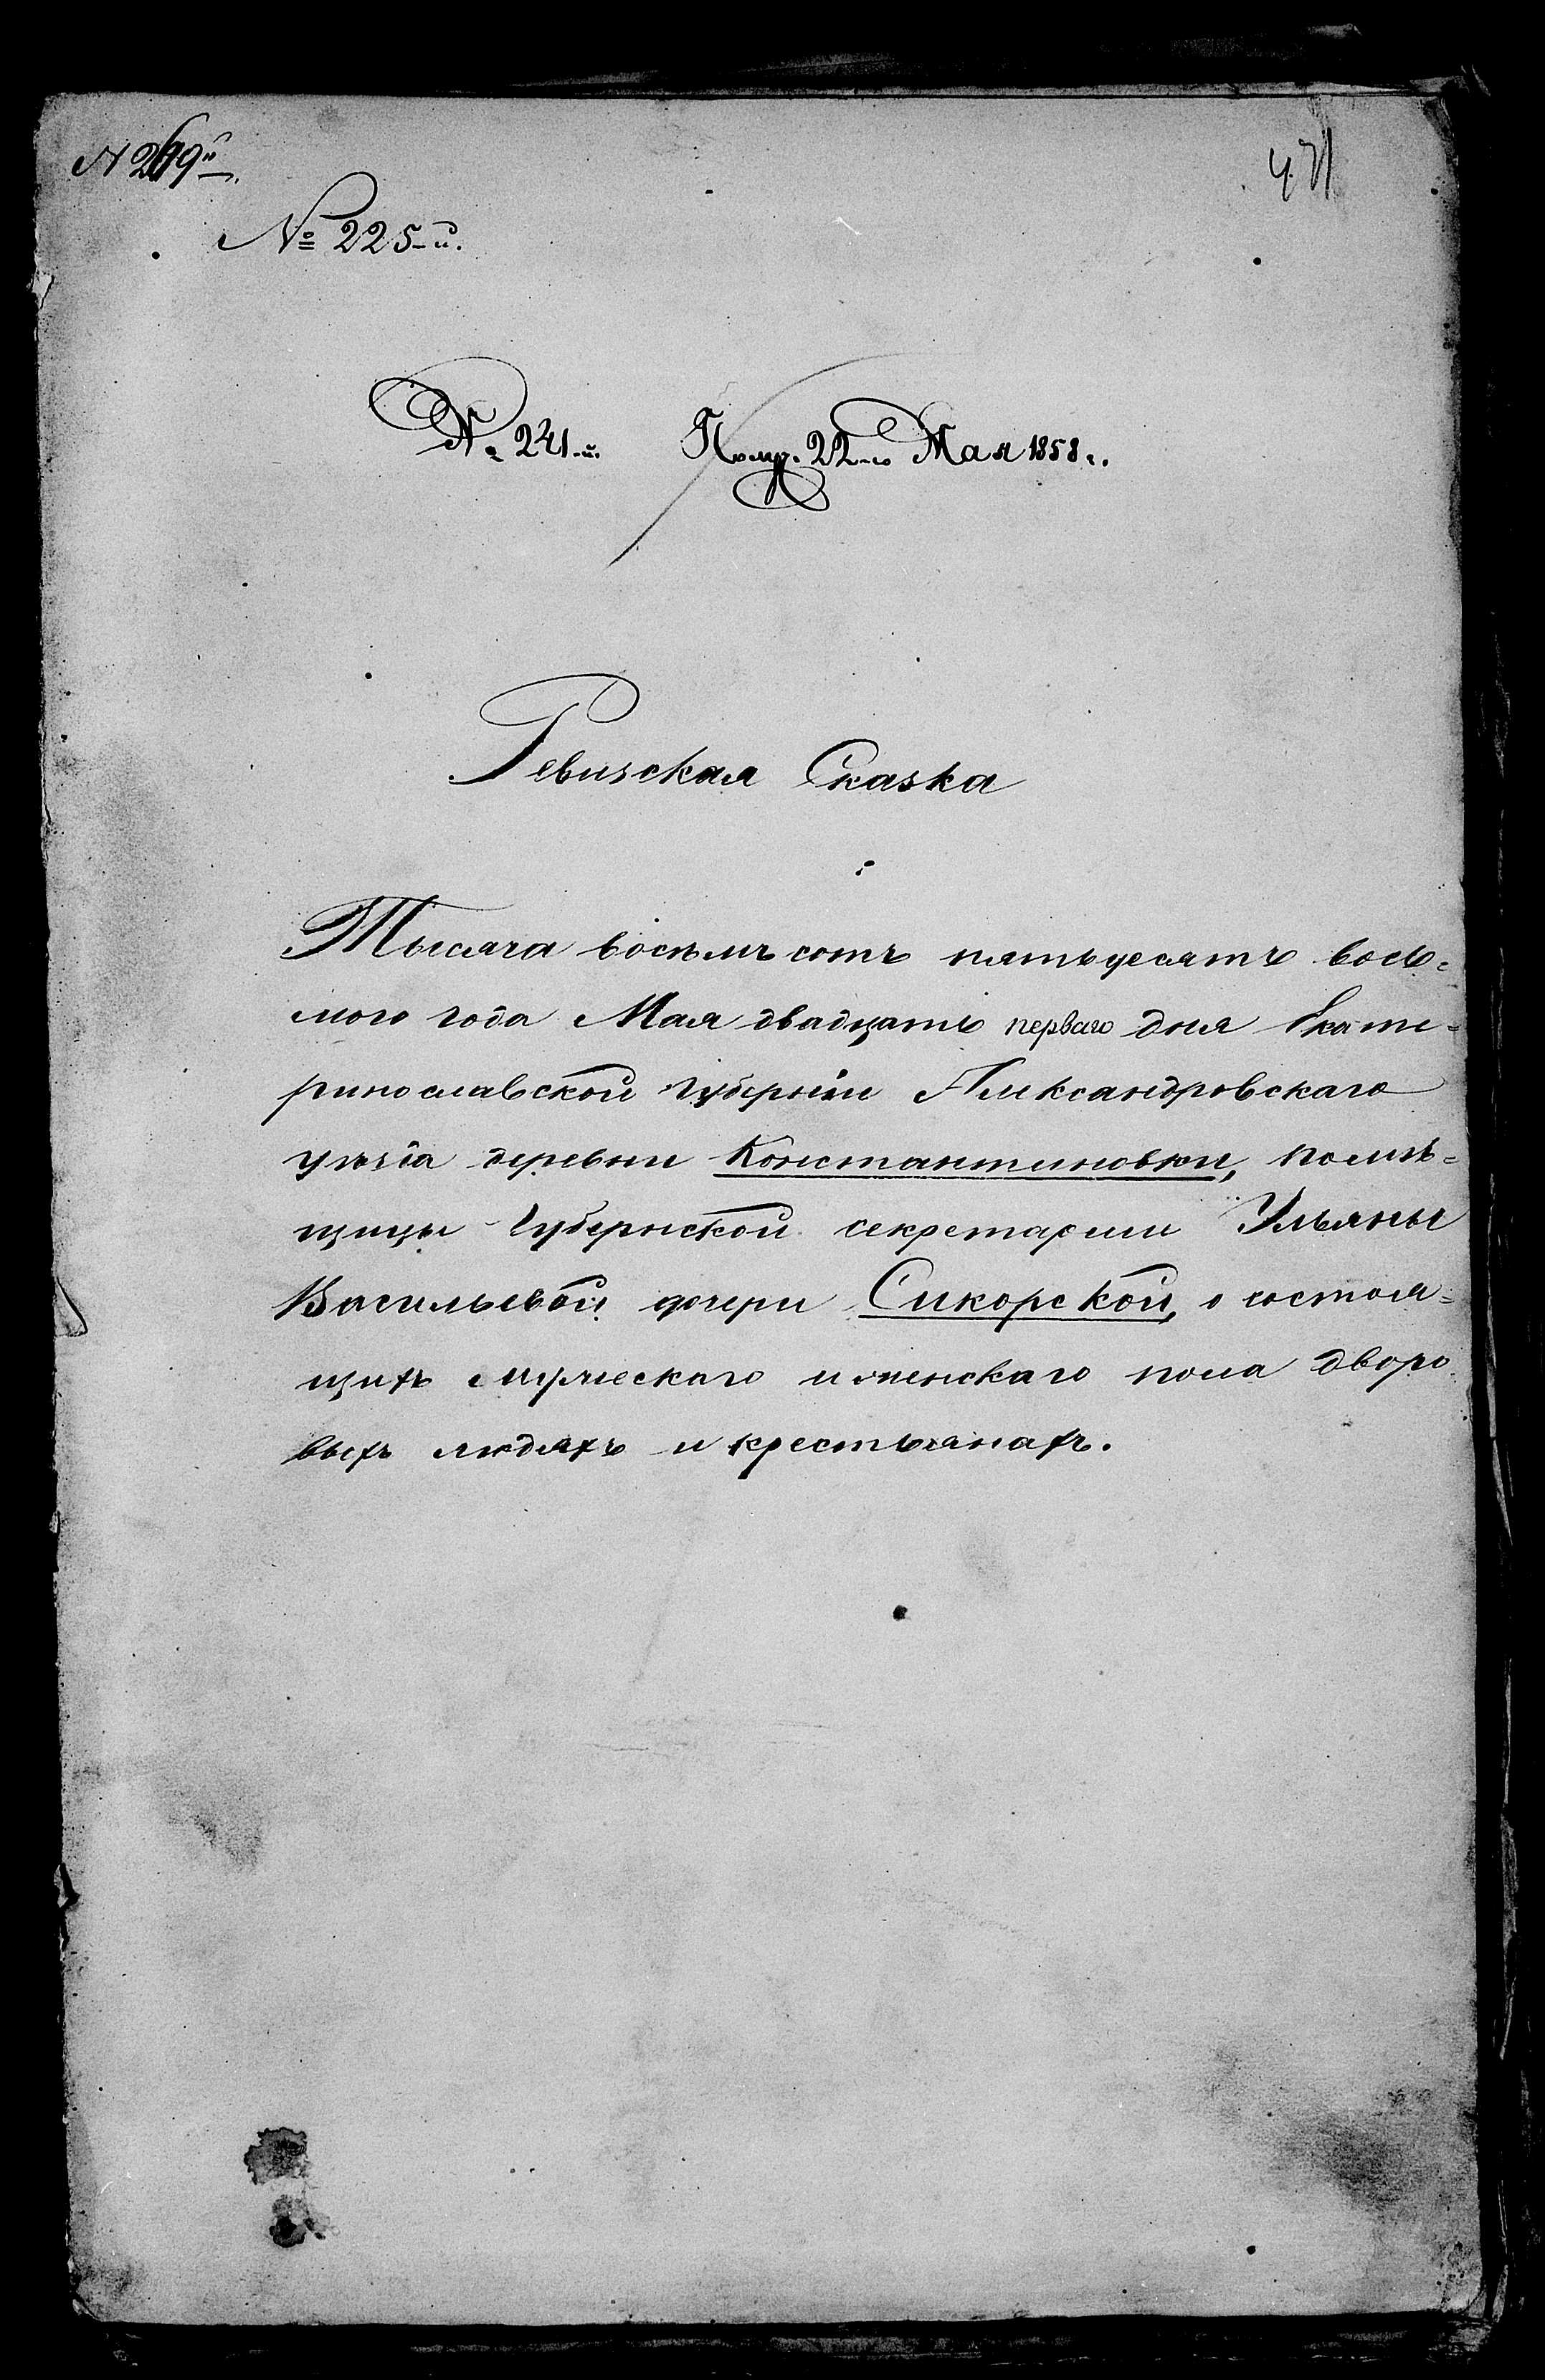 471
№ 225-й.
№ 241-й. Получ. 22-го Мая 1858 г.
Ревизская Сказка
Тысяча восемь сотъ пятьдесятъ вось=
мого года Мая двадцать перваго дня Екате=
ринославской Губерніи Александровскаго
уѣзда деревни Константиновки, помѣ=
щицы Губернской секретарши Ульяны
Васильевой дочери Сикорской, о состоя=
щихъ мужескаго и женскаго пола дворо
выхъ людяхъ и крестьянахъ.